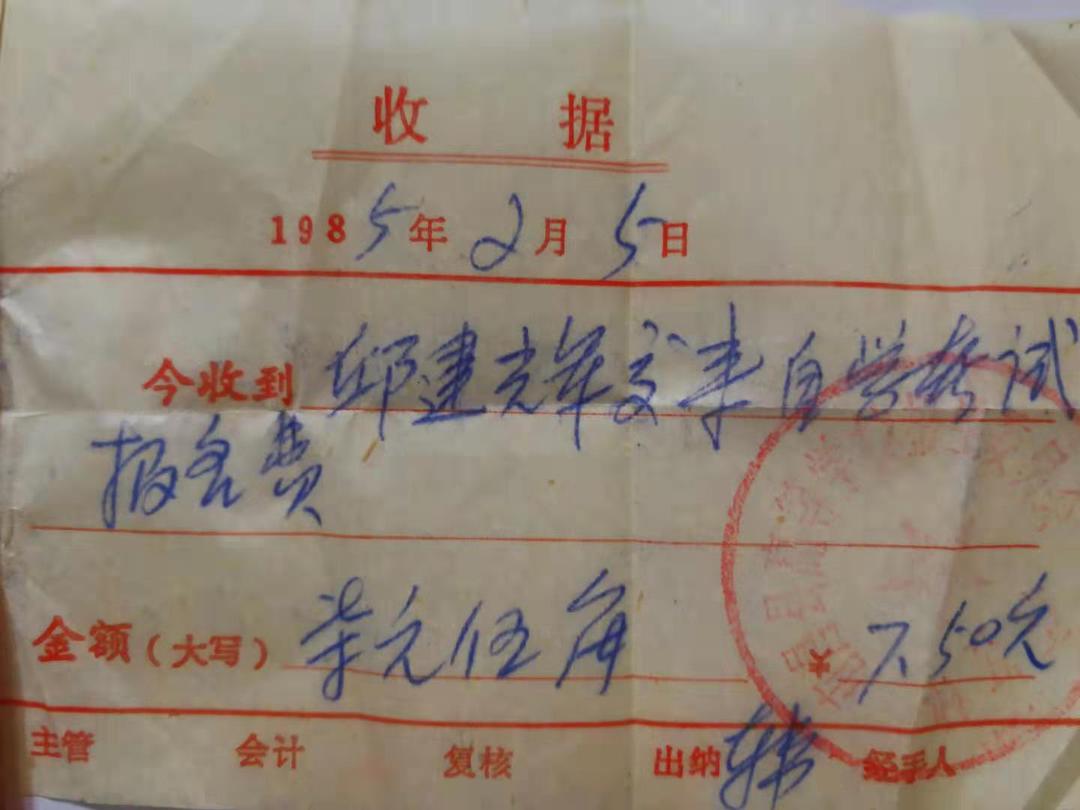 收 据
1985年2月5日
今收到 邱建光年交来自学考试
报名费
金额(大写) 柒元伍角 7.50元
主管 会计 复核 出纳 经手人